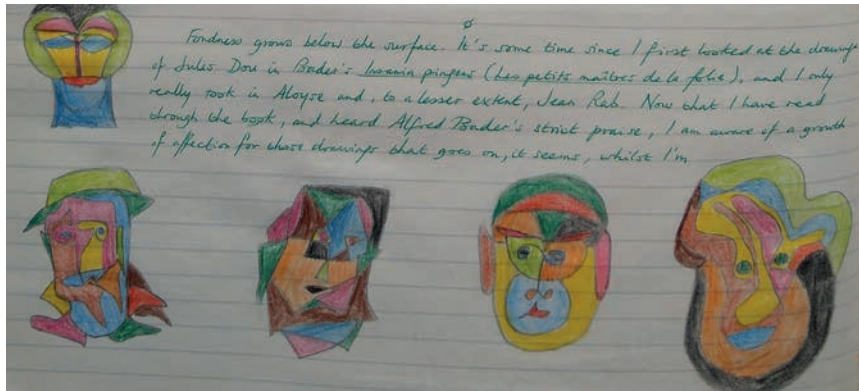 ø
Fondness grows below the surface. It's some time since I first looked at the drawings
of Jules Dou in Bader's Insania pingens (Les petits maîtres de la folie), and I only
really took in Aloyse and, to a lesser extent, Jean Rab. Now that I have read
through the book, and heard Alfred Bader's strict praise, I am aware of a growth
of affection for those drawings that goes on, it seems, whilst I'm